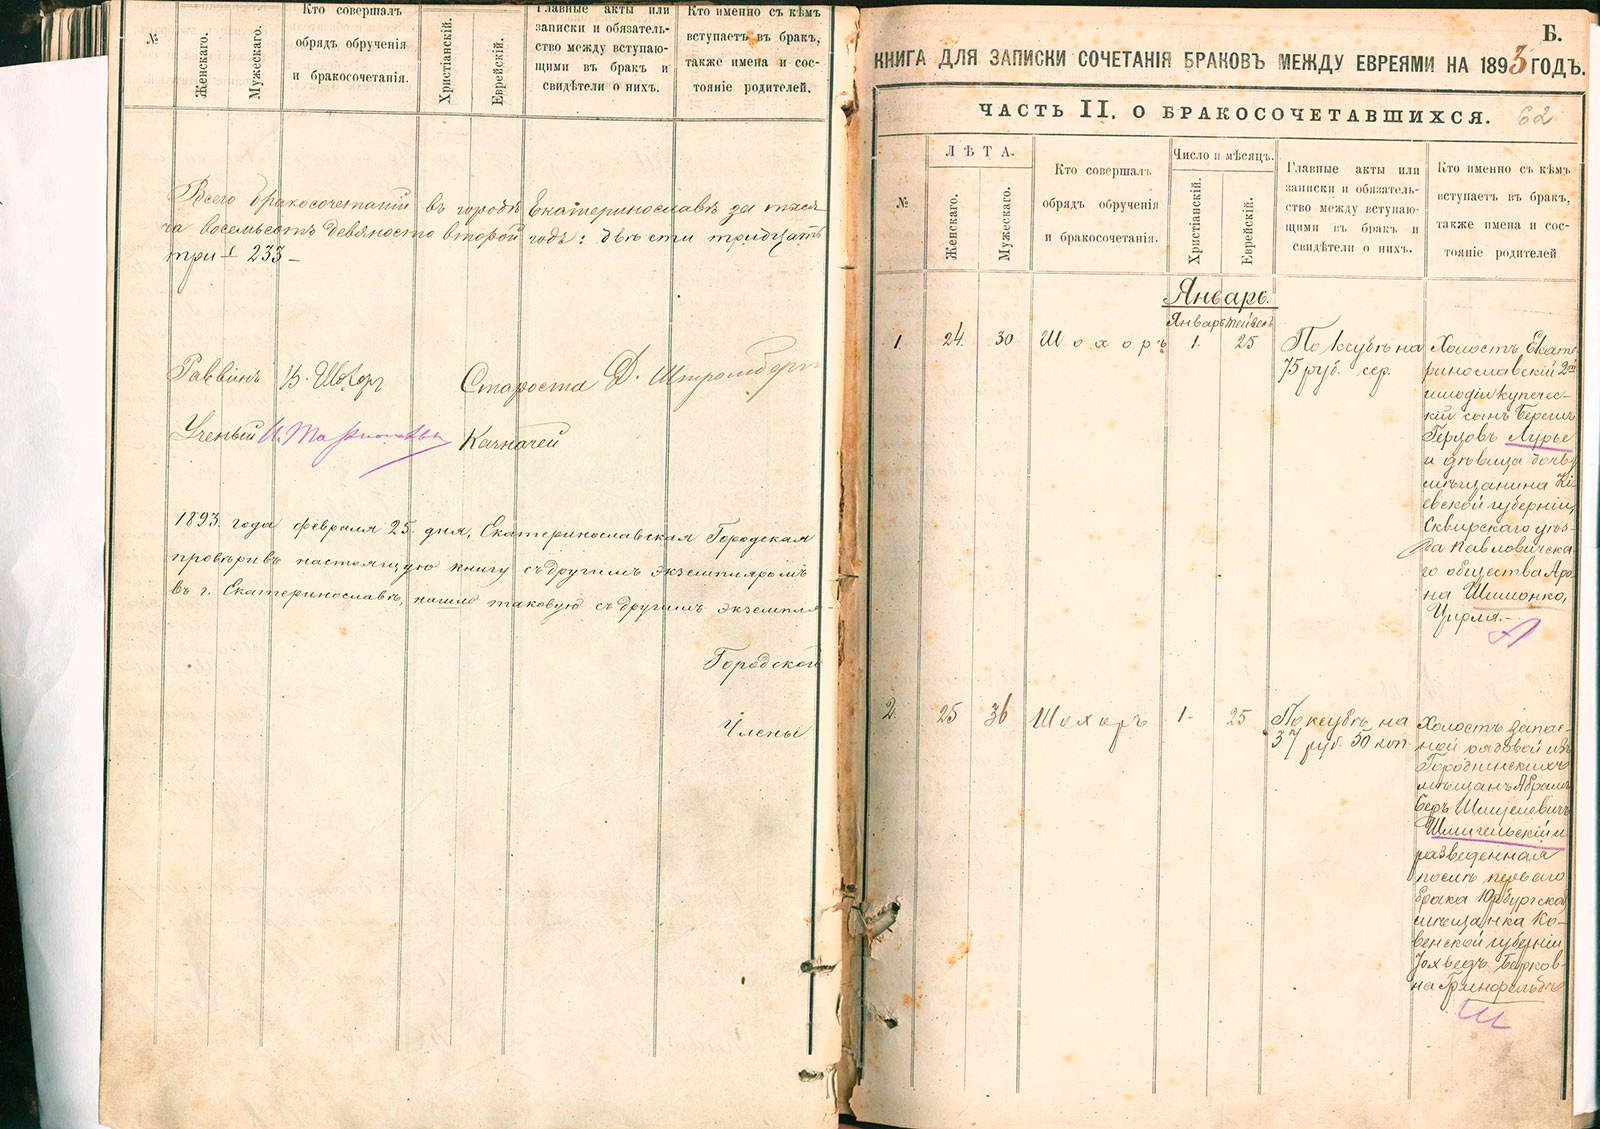 №
Женскаго.
Мужескаго.
Кто совершалъ
обрядъ обрученія
и бракосочетанія.
Христіанскій.
Еврейскій.
Главные акты или
записки и обязатель-
ство между вступаю-
щими въ бракъ и
свидѣтели о нихъ.
Кто именно съ кѣмъ
вступаетъ въ бракъ,
также имена и сос-
тояніе родителей.
Всего бракосочетаній въ городѣ Екатеринославѣ за тыся-
ча восемьсотъ девяносто второй годъ: двѣсти тридцать
три 233
Раввинъ В. Шохоръ Староста Д. Штромбергъ
Ученый Казначей
1893. года февраля 25. дня, Екатеринославская Городская
провѣривъ настоящую книгу съ другимъ экземпляромъ
въ г. Екатеринославѣ, нашло таковую съ другимъ экземпля-
Городской
Члены
Б.
КНИГА ДЛЯ ЗАПИСКИ СОЧЕТАНІЯ БРАКОВЪ МЕЖДУ ЕВРЕЯМИ НА 1893 ГОДЪ.
ЧАСТЬ II. О БРАКОСОЧЕТАВШИХСЯ. 62
№
ЛѢТА.
Женскаго.
Мужескаго.
Кто совершалъ
обрядъ обрученія
и бракосочетанія.
Число и мѣсяцъ.
Христіанскій.
Еврейскій.
Главные акты или
записки и обязатель-
ство между вступаю-
щими въ бракъ и
свидѣтели о нихъ.
Кто именно съ кѣмъ
вступаетъ въ бракъ,
также имена и сос-
тояніе родителей
Январь.
Январь Тейвесъ
1. 24. 30 Шохоръ 1. 25
По ксубѣ на
75 руб. сер.
Холостъ Екате-
ринославскій 2ой
гильдіи купечес-
кій сынъ
Герцовъ Лурье
и дѣвица дочь
мѣщанина Кі-
евской губерніи,
Сквирскаго уѣз-
да Павловичска-
го общества Аро-
на Шимонко,
Цирля.-
Л
2. 25 36 Шохоръ 1. 25
По ксубѣ на
37 руб. 50 коп.
Холостъ запас-
ной рядовой изъ
Городнинскихъ
мѣщанъ Абрамъ
Беръ Шмулевичъ
Шмигельскій и
разведенная
послѣ перваго
брака Юрбургска
мѣщанка Ко-
венской губерніи
Іохведъ Берков-
на Гринфельдъ
Ш